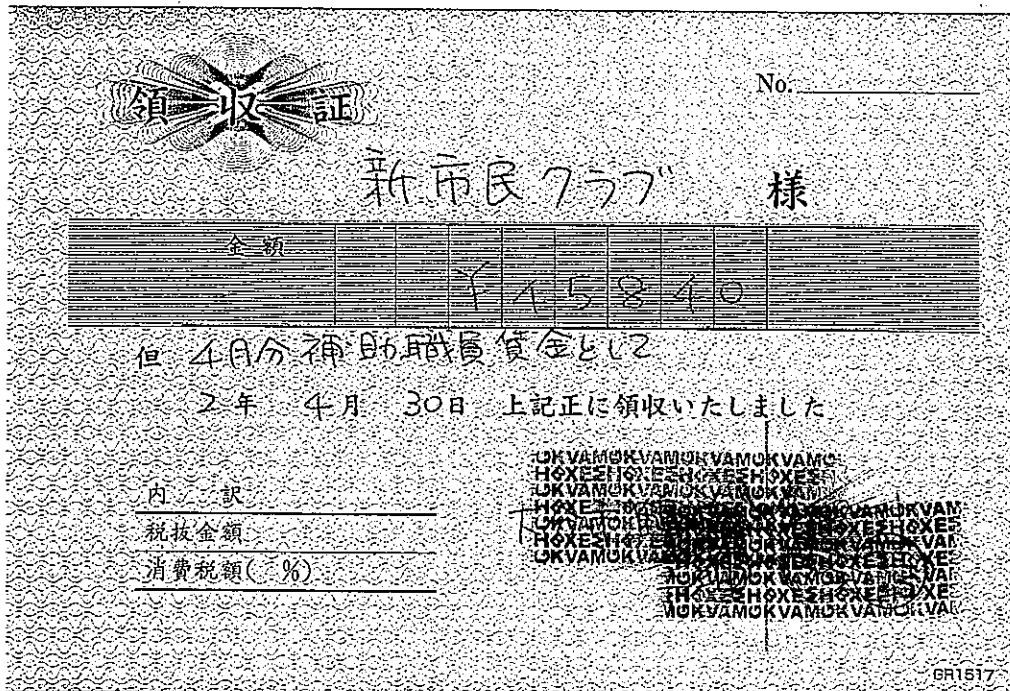 領収証
No.
新市民クラブ 様
金額 ¥15840
但 4月分補助職員賃金として
2年 4月 30日 上記正に領収いたしました
内 訳
税抜金額
消費税額( %)
GR1517